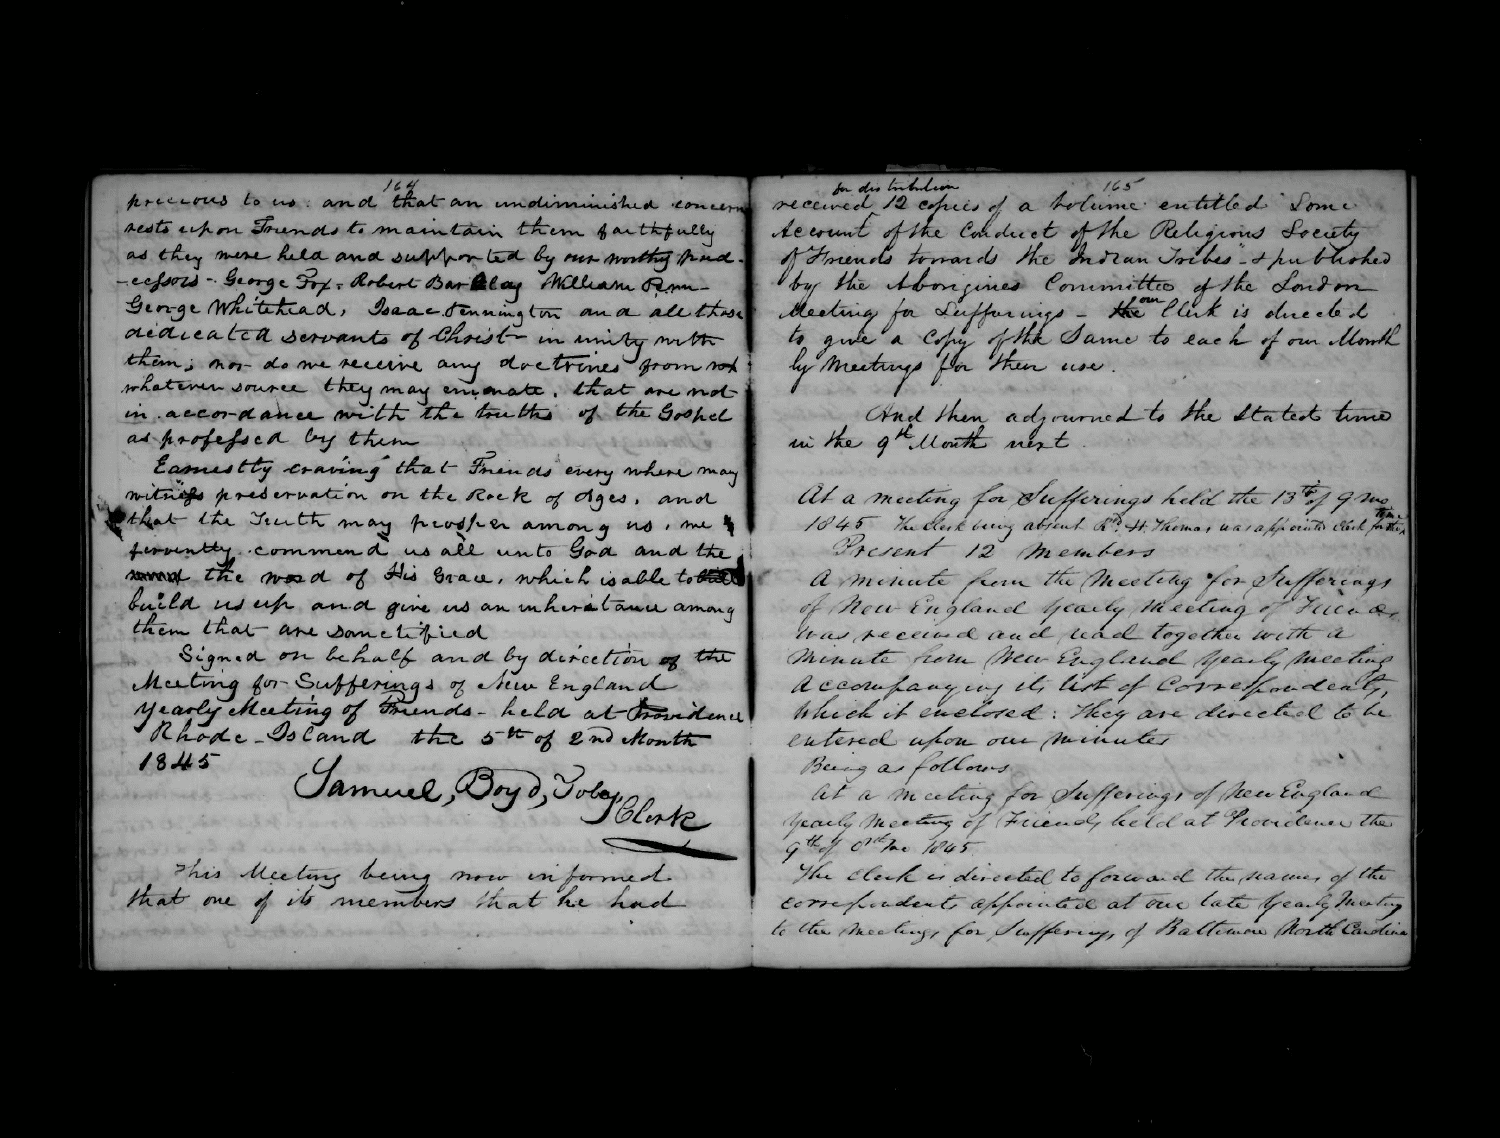 164
precious to us: and that an undiminished concern
rests upon Friends to maintain them faithfully
as they were held and supported by our worthy pred-
-ecessors - George Fox - Robert Barclay William Penn -
George Whitehead, Isaac Pennington and all those
dedicated servants of Christ in unity with
them; nor do we receive any doctrines from
whatever source they may emanate, that are not
in accordance with the truths of the Gospel
as professed by them
Earnestly craving that Friends every where may
witness preservation on the Rock of Ages, and
that the Truth may prosper among us, we
fervently commend us all unto God and the
the word of His Grace, which is able to
build us up and give us an inheritance among
them that are sanctified
Signed on behalf and by direction of the
Meeting for Sufferings of New England
Yearly Meeting of Friends - held at Providence
Rhode-Island the 5th of 2nd Month
1845
Samuel, Boyd, Tobey
Clerk
This Meeting being now informed
that one of its members that he had
165
for distribution
received 12 copies of a volume entitled "Some
Account of the Conduct of the Religious Society
of Friends towards the Indian Tribes" & published
by the Aborigines Committee of the London
Meeting for Sufferings - the our Clerk is directed
to give a Copy of the Same to each of our Month
ly Meetings for their use.
And then adjourned to the stated time
in the 9th Month next.
At a meeting for Sufferings held the 13th of 9 mo
1845 The Clerk being absent Rd. H. Thomas was appointed Clerk for this time
Present 12 members
A minute from the Meeting for Sufferings
of New England Yearly Meeting of Friends
was received and read together with a
minute from New England Yearly Meeting
accompanying its list of Correspondents,
which it enclosed: They are directed to be
entered upon our minutes
Being as follows
At a meeting for Sufferings of New England
Yearly Meeting of Friends held at Providence the
9th of mo 1845
The Clerk is directed to forward the names of the
correspondents appointed at our late Yearly Meeting
to the Meetings for Sufferings of Baltimore North Carolina